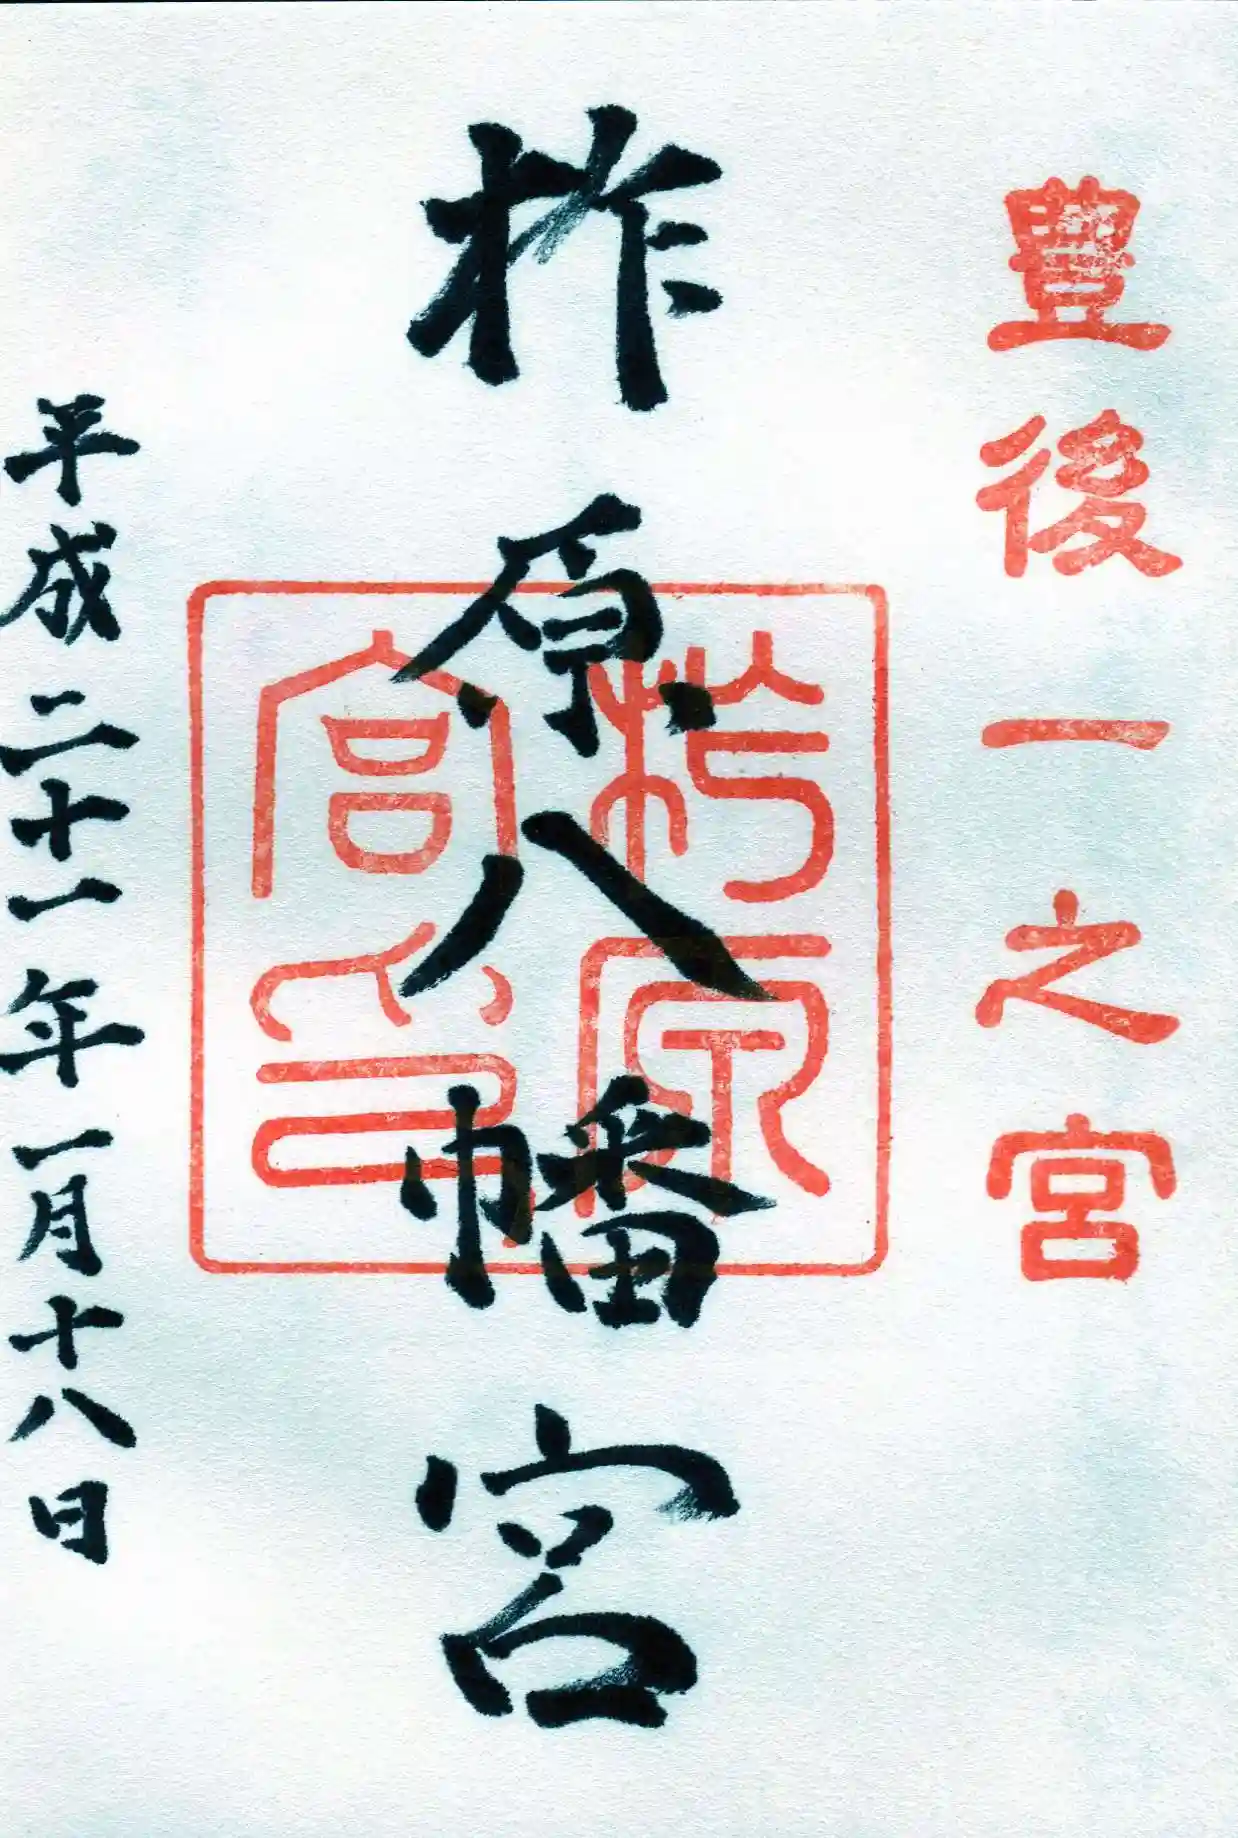 豊後一之宮
柞原八幡宮
柞原宮印
平成二十一年一月十八日